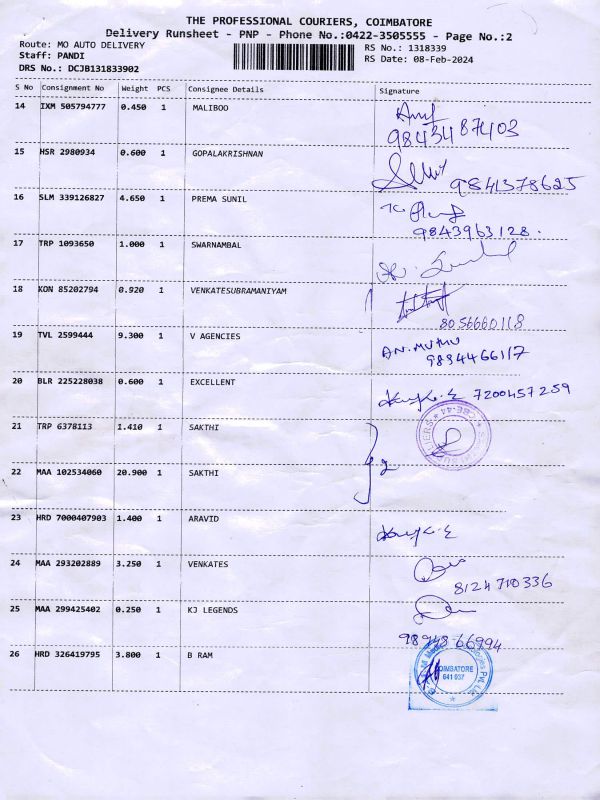 THE PROFESSIONAL COURIERS, COIMBATORE
Delivery Runsheet - PNP - Phone No.:0422-3505555 - Page No.:2
Route: MO AUTO DELIVERY
RS No.: 1318339
Staff: PANDI
RS Date: 08-Feb-2024
DRS No.: DCJB131833902
S No Consignment No Weight PCS Consignee Details Signature
14 IXM 505794777 0.450 1 MALIBOO
9843487403
15 HSR 2980934 0.600 1 GOPALAKRISHNAN
9841378625
16 SLM 339126827 4.650 1 PREMA SUNIL
9843963128.
17 TRP 1093650 1.000 1 SWARNAMBAL
18 KON 85202794 0.920 1 VENKATESUBRAMANIYAM
8056660118
19 TVL 2599444 9.300 1 V AGENCIES
AN.MUTHU
9894466117
20 BLR 225228038 0.600 1 EXCELLENT
7200457259
21 TRP 6378113 1.410 1 SAKTHI
22 MAA 102534060 20.900 1 SAKTHI
2
23 HRD 7000407903 1.400 1 ARAVID
24 MAA 293202889 3.250 1 VENKATES
8124710336
25 MAA 299425402 0.250 1 KJ LEGENDS
98948-66994
26 HRD 326419795 3.800 1 B RAM
COIMBATORE
641 037